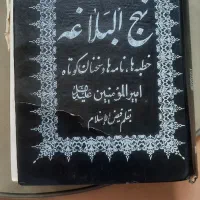 نهج البلاغه
خطبه ها، نامه ها و سخنان کوتاه
امیرالمؤمنین علیه السلام
بقلم فیض الاسلام